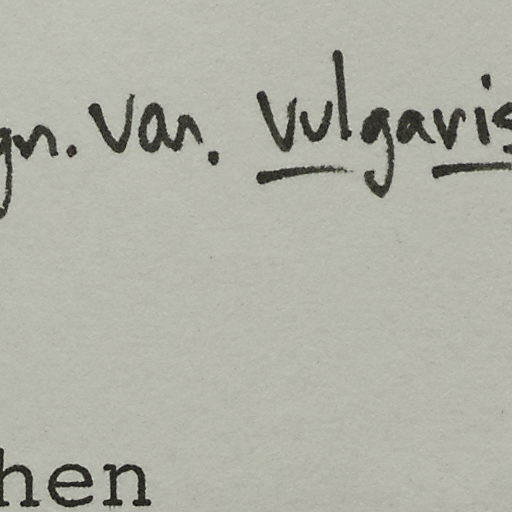 gn. var. vulgaris
hen